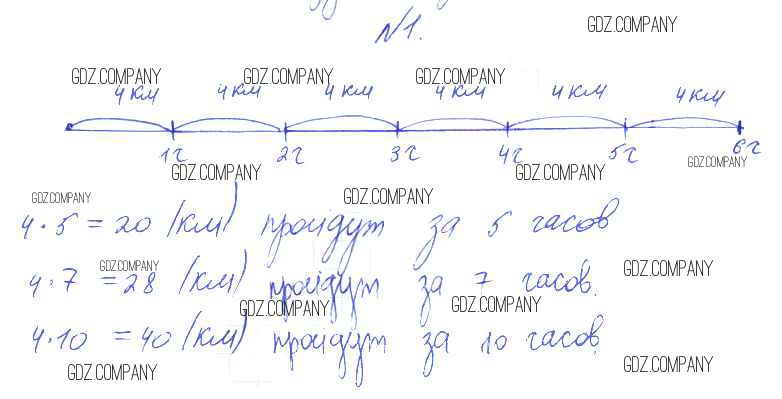 №1.
GDZ.COMPANY
GDZ.COMPANY GDZ.COMPANY GDZ.COMPANY
4 км 4 км 4 км 4 км 4 км 4 км
1 ч 2 ч 3 ч 4 ч 5 ч 6 ч
GDZ.COMPANY GDZ.COMPANY GDZ.COMPANY
GDZ.COMPANY GDZ.COMPANY
4 · 5 = 20 (км) пройдут за 5 часов
GDZ.COMPANY GDZ.COMPANY
4 · 7 = 28 (км) пройдут за 7 часов.
GDZ.COMPANY GDZ.COMPANY
4 · 10 = 40 (км) пройдут за 10 часов.
GDZ.COMPANY GDZ.COMPANY